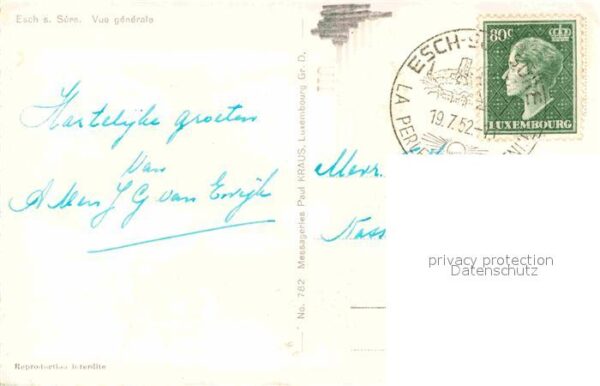 Esch s. Sûre. Vue générale
Hartelijke groeten
van
v. Ewijk
No. 782 Messageries Paul KRAUS, Luxembourg Gr. D.
80c
LUXEMBOURG
ESCH-SUR-SURE
LA PERLE
19.7.52
Mevr.
Kass
privacy protection
Datenschutz
Reproduction interdite